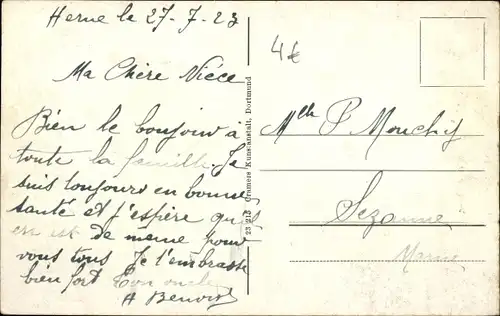 Herne le 27-7-23
Ma Chère Nièce
Bien le bonjour à
toute la famille. Je
suis toujours en bonne
santé et j'espère qu'il
en est de meme pour
vous tous Je t'embrasse
bien fort Ton oncle
A Benoist
23 213 Cramers Kunstanstalt, Dortmund
4€
Mlle P Mouchy
Sezanne
Marne